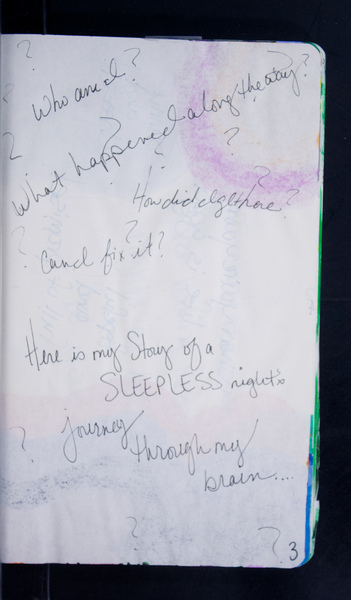 Who am I?
What happened along the way?
How did I get here?
Can I fix it?
Here is my Story of a
SLEEPLESS night's
journey
through my
brain....
3